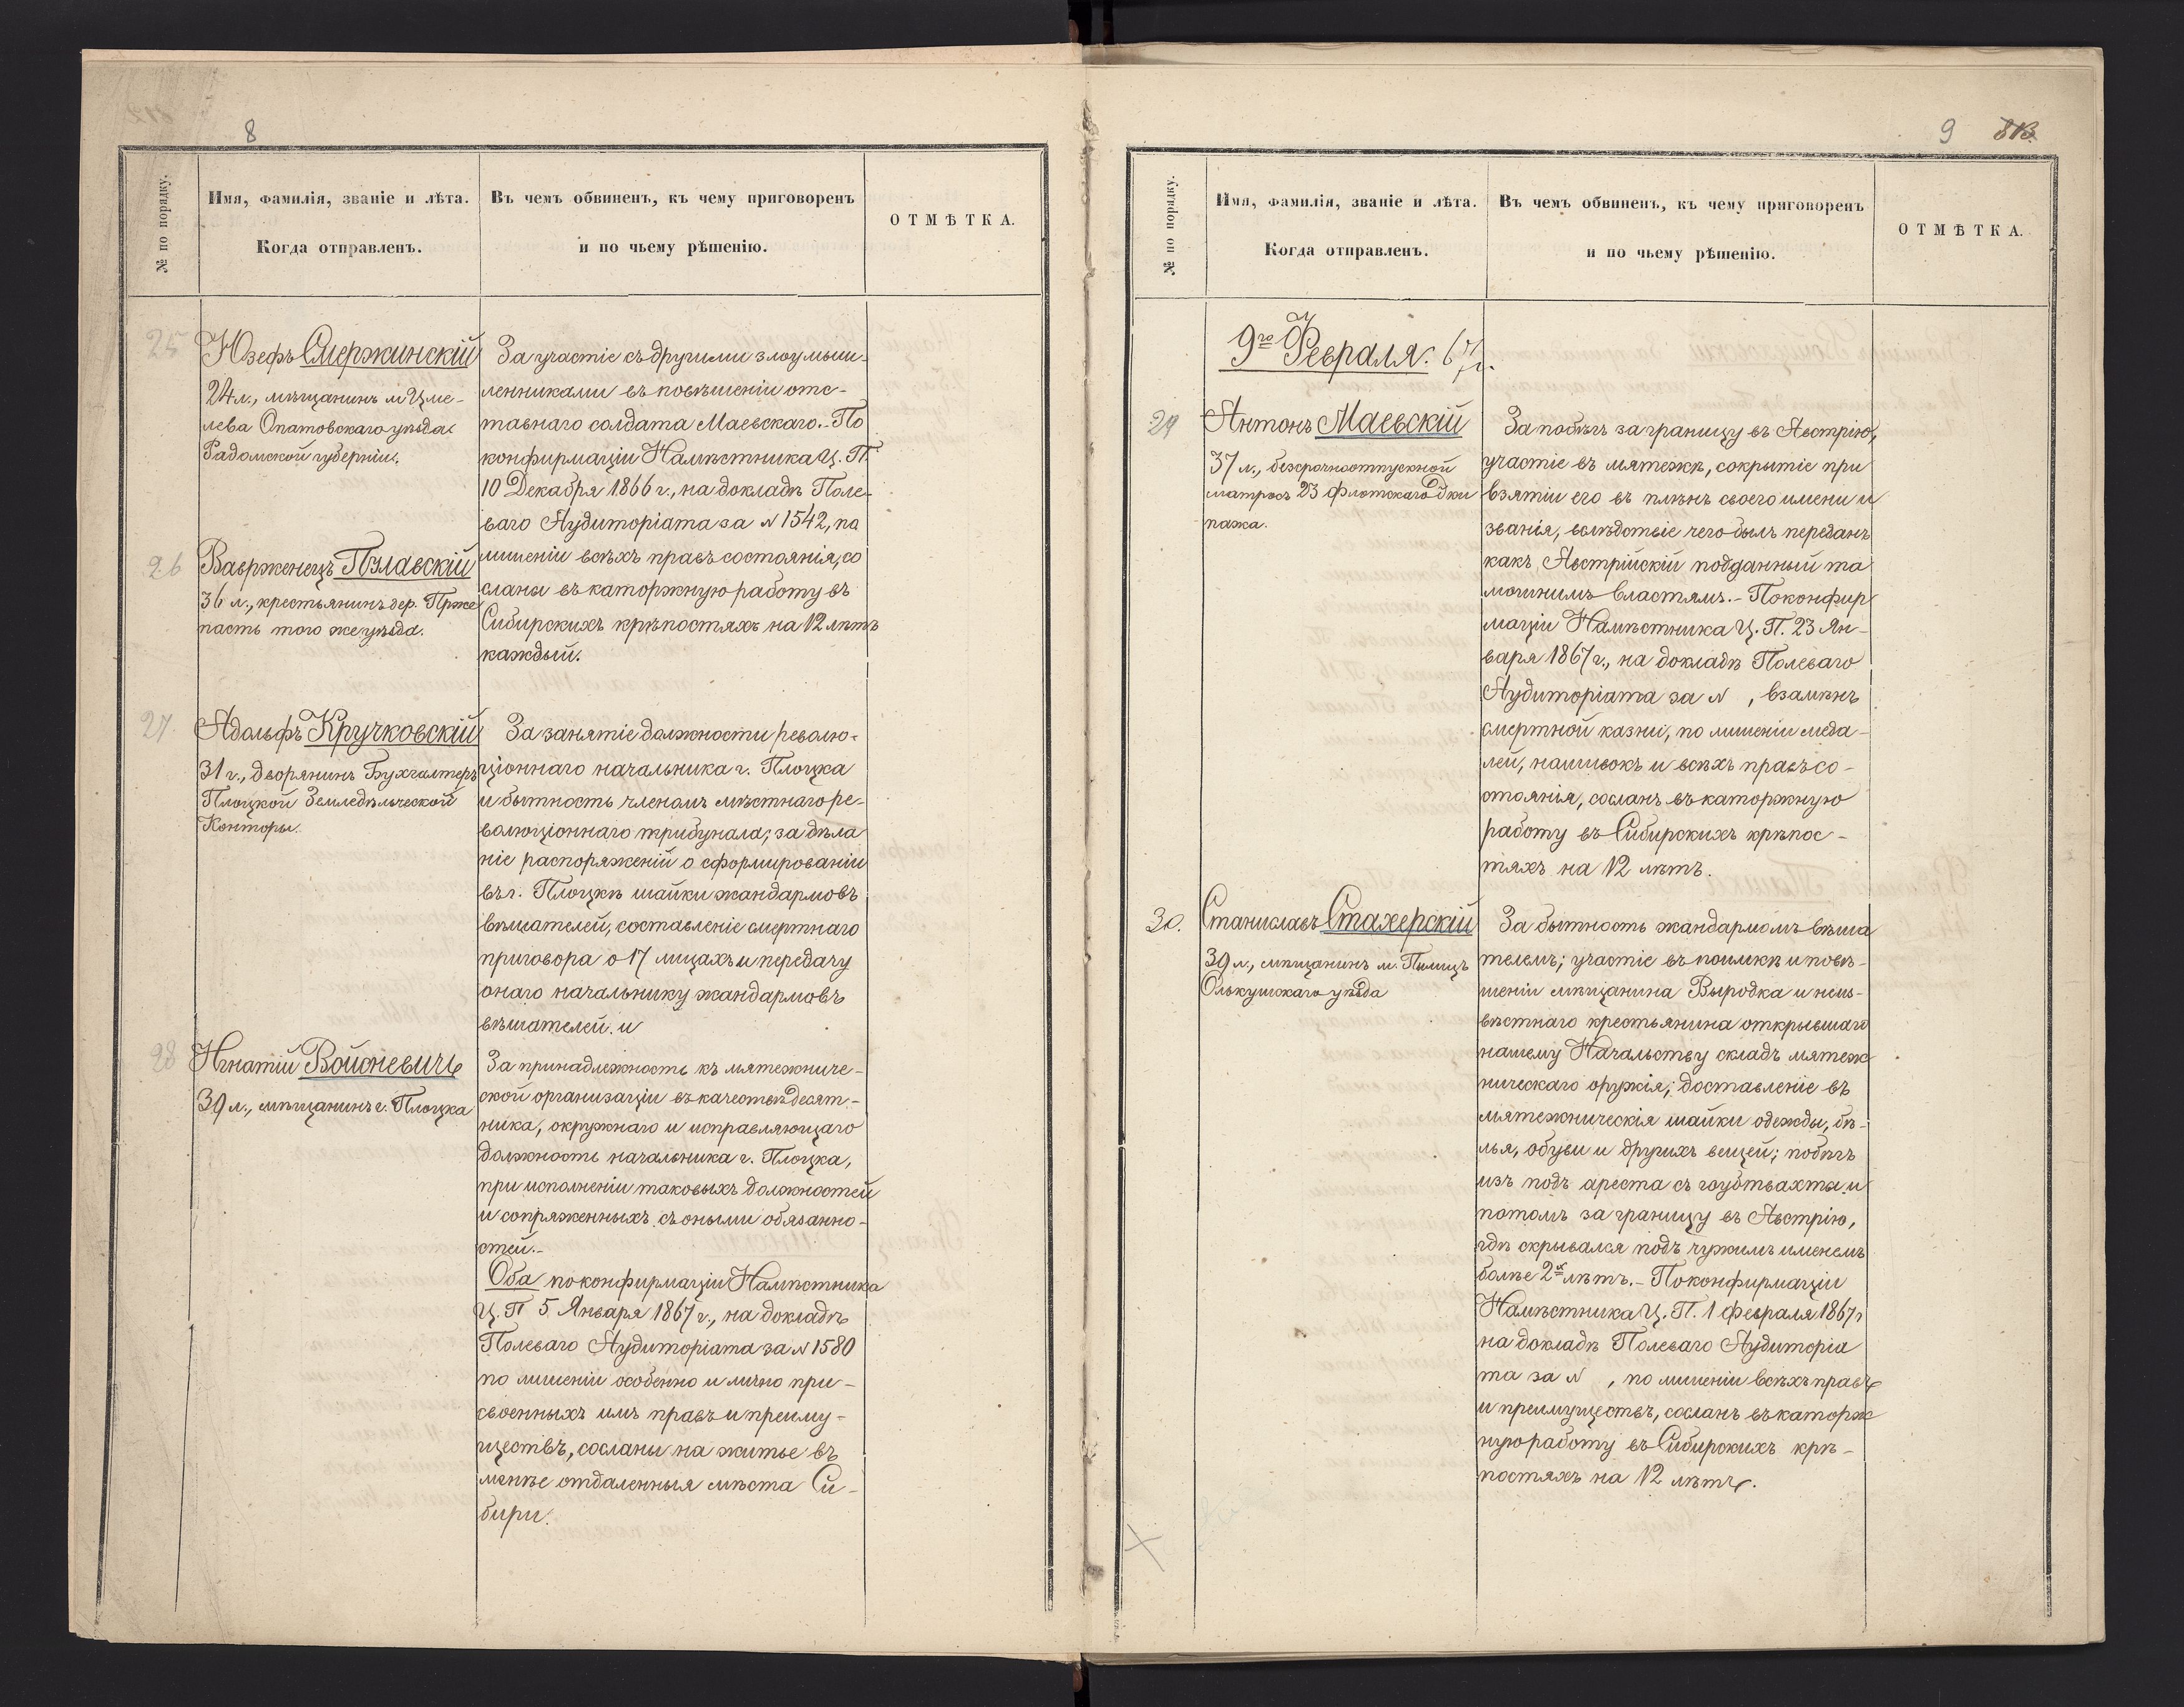 8
№ по порядку.
Имя, фамилія, званіе и лѣта.
Когда отправленъ.
Въ чемъ обвиненъ, къ чему приговоренъ
и по чьему рѣшенію.
ОТМѢТКА.
25
Юзефъ Смержинскій
24 л., мѣщанинъ м. Цме-
лева Опатовскаго уѣзда
Радомской губерніи.
За участіе съ другими злоумыш-
ленниками въ повѣшеніи отс-
тавнаго солдата Маевскаго. - По
конфирмаціи Намѣстника Ц. П.
10 Декабря 1866 г., на докладѣ Поле-
ваго Аудиторіата за N 1542, по
лишеніи всѣхъ правъ состоянія, со
сланы въ каторжную работу въ
Сибирскихъ крѣпостяхъ на 12 лѣтъ
каждый.
26
Ваврженецъ Пулавскій
36 л., крестьянинъ дер. Прже
пасть того же уѣзда.
27.
Адольфъ Кручковскій
31 г., дворянинъ Бухгалтеръ
Плоцкой Земледѣльческой
Конторы.
За занятіе должности револю-
ціоннаго начальника г. Плоцка
и бытность членомъ мѣстнаго ре-
волюціоннаго трибунала; за дѣла
ніе распоряженій о сформированіи
въ г. Плоцкѣ шайки жандармовъ
вѣшателей, составленіе смертнаго
приговора о 17 лицахъ и передачу
онаго начальнику жандармовъ
вѣшателей. и
28
Игнатій Войцѣевичъ
39 л., мѣщанинъ г. Плоцка
За принадлежность къ мятежниче-
ской организаціи въ качествѣ десят-
ника, окружнаго и исправляющаго
должность начальника г. Плоцка,
при исполненіи таковыхъ должностей
и сопряженныхъ съ оными обязанно-
стей. -
Оба по конфирмаціи Намѣстника
Ц. П 5 Января 1867 г., на докладѣ
Полеваго Аудиторіата за N 1580
по лишеніи особенно и лично при-
своенныхъ имъ правъ и преиму-
ществъ, сосланы на житье въ
менѣе отдаленныя мѣста Си-
бири.
9 813.
№ по порядку.
Имя, фамилія, званіе и лѣта.
Когда отправленъ.
Въ чемъ обвиненъ, къ чему приговоренъ
и по чьему рѣшенію.
ОТМѢТКА.
9го Февраля. 67 г.
29
Антонъ Маевскій
37 л., безсрочноотпускной
матросъ 23 флотскаго Эки
пажа.
За побѣгъ за границу въ Австрію,
участіе въ мятежѣ, сокрытіе при
взятіи его въ плѣнъ своего имени и
званія, вслѣдствіе чего былъ переданъ
какъ Австрійскій подданный та
мошнимъ властямъ. - По конфир
маціи Намѣстника Ц. П. 23 Ян-
варя 1867 г., на докладѣ Полеваго
Аудиторіата за N , взамѣнъ
смертной казни, по лишеніи меда-
лей, нашивокъ и всѣхъ правъ со-
стоянія, сосланъ въ каторжную
работу въ Сибирскихъ крѣпос-
тяхъ на 12 лѣтъ.
30.
Станиславъ Стахерскій
39 л., мѣщанинъ м. Пилицъ
Олькушскаго уѣзда
За бытность жандармомъ вѣша
телемъ; участіе въ поимкѣ и повѣ-
шеніи мѣщанина Выродка и неиз-
вѣстнаго крестьянина открывшаго
нашему Начальству складъ мятеж
ническаго оружія; доставленіе въ
мятежническія шайки одежды, бѣ-
лья, обуви и другихъ вещей; побѣгъ
изъ подъ ареста съ гоубтвахты и
потомъ за границу въ Австрію,
гдѣ скрывался подъ чужимъ именемъ
болѣе 2х лѣтъ. - По конфирмаціи
Намѣстника Ц. П. 1 Февраля 1867 г
на докладѣ Полеваго Аудиторіа
та за N , по лишеніи всѣхъ правъ
и преимуществъ, сосланъ въ каторж
ную работу въ Сибирскихъ крѣ-
постяхъ на 12 лѣтъ.